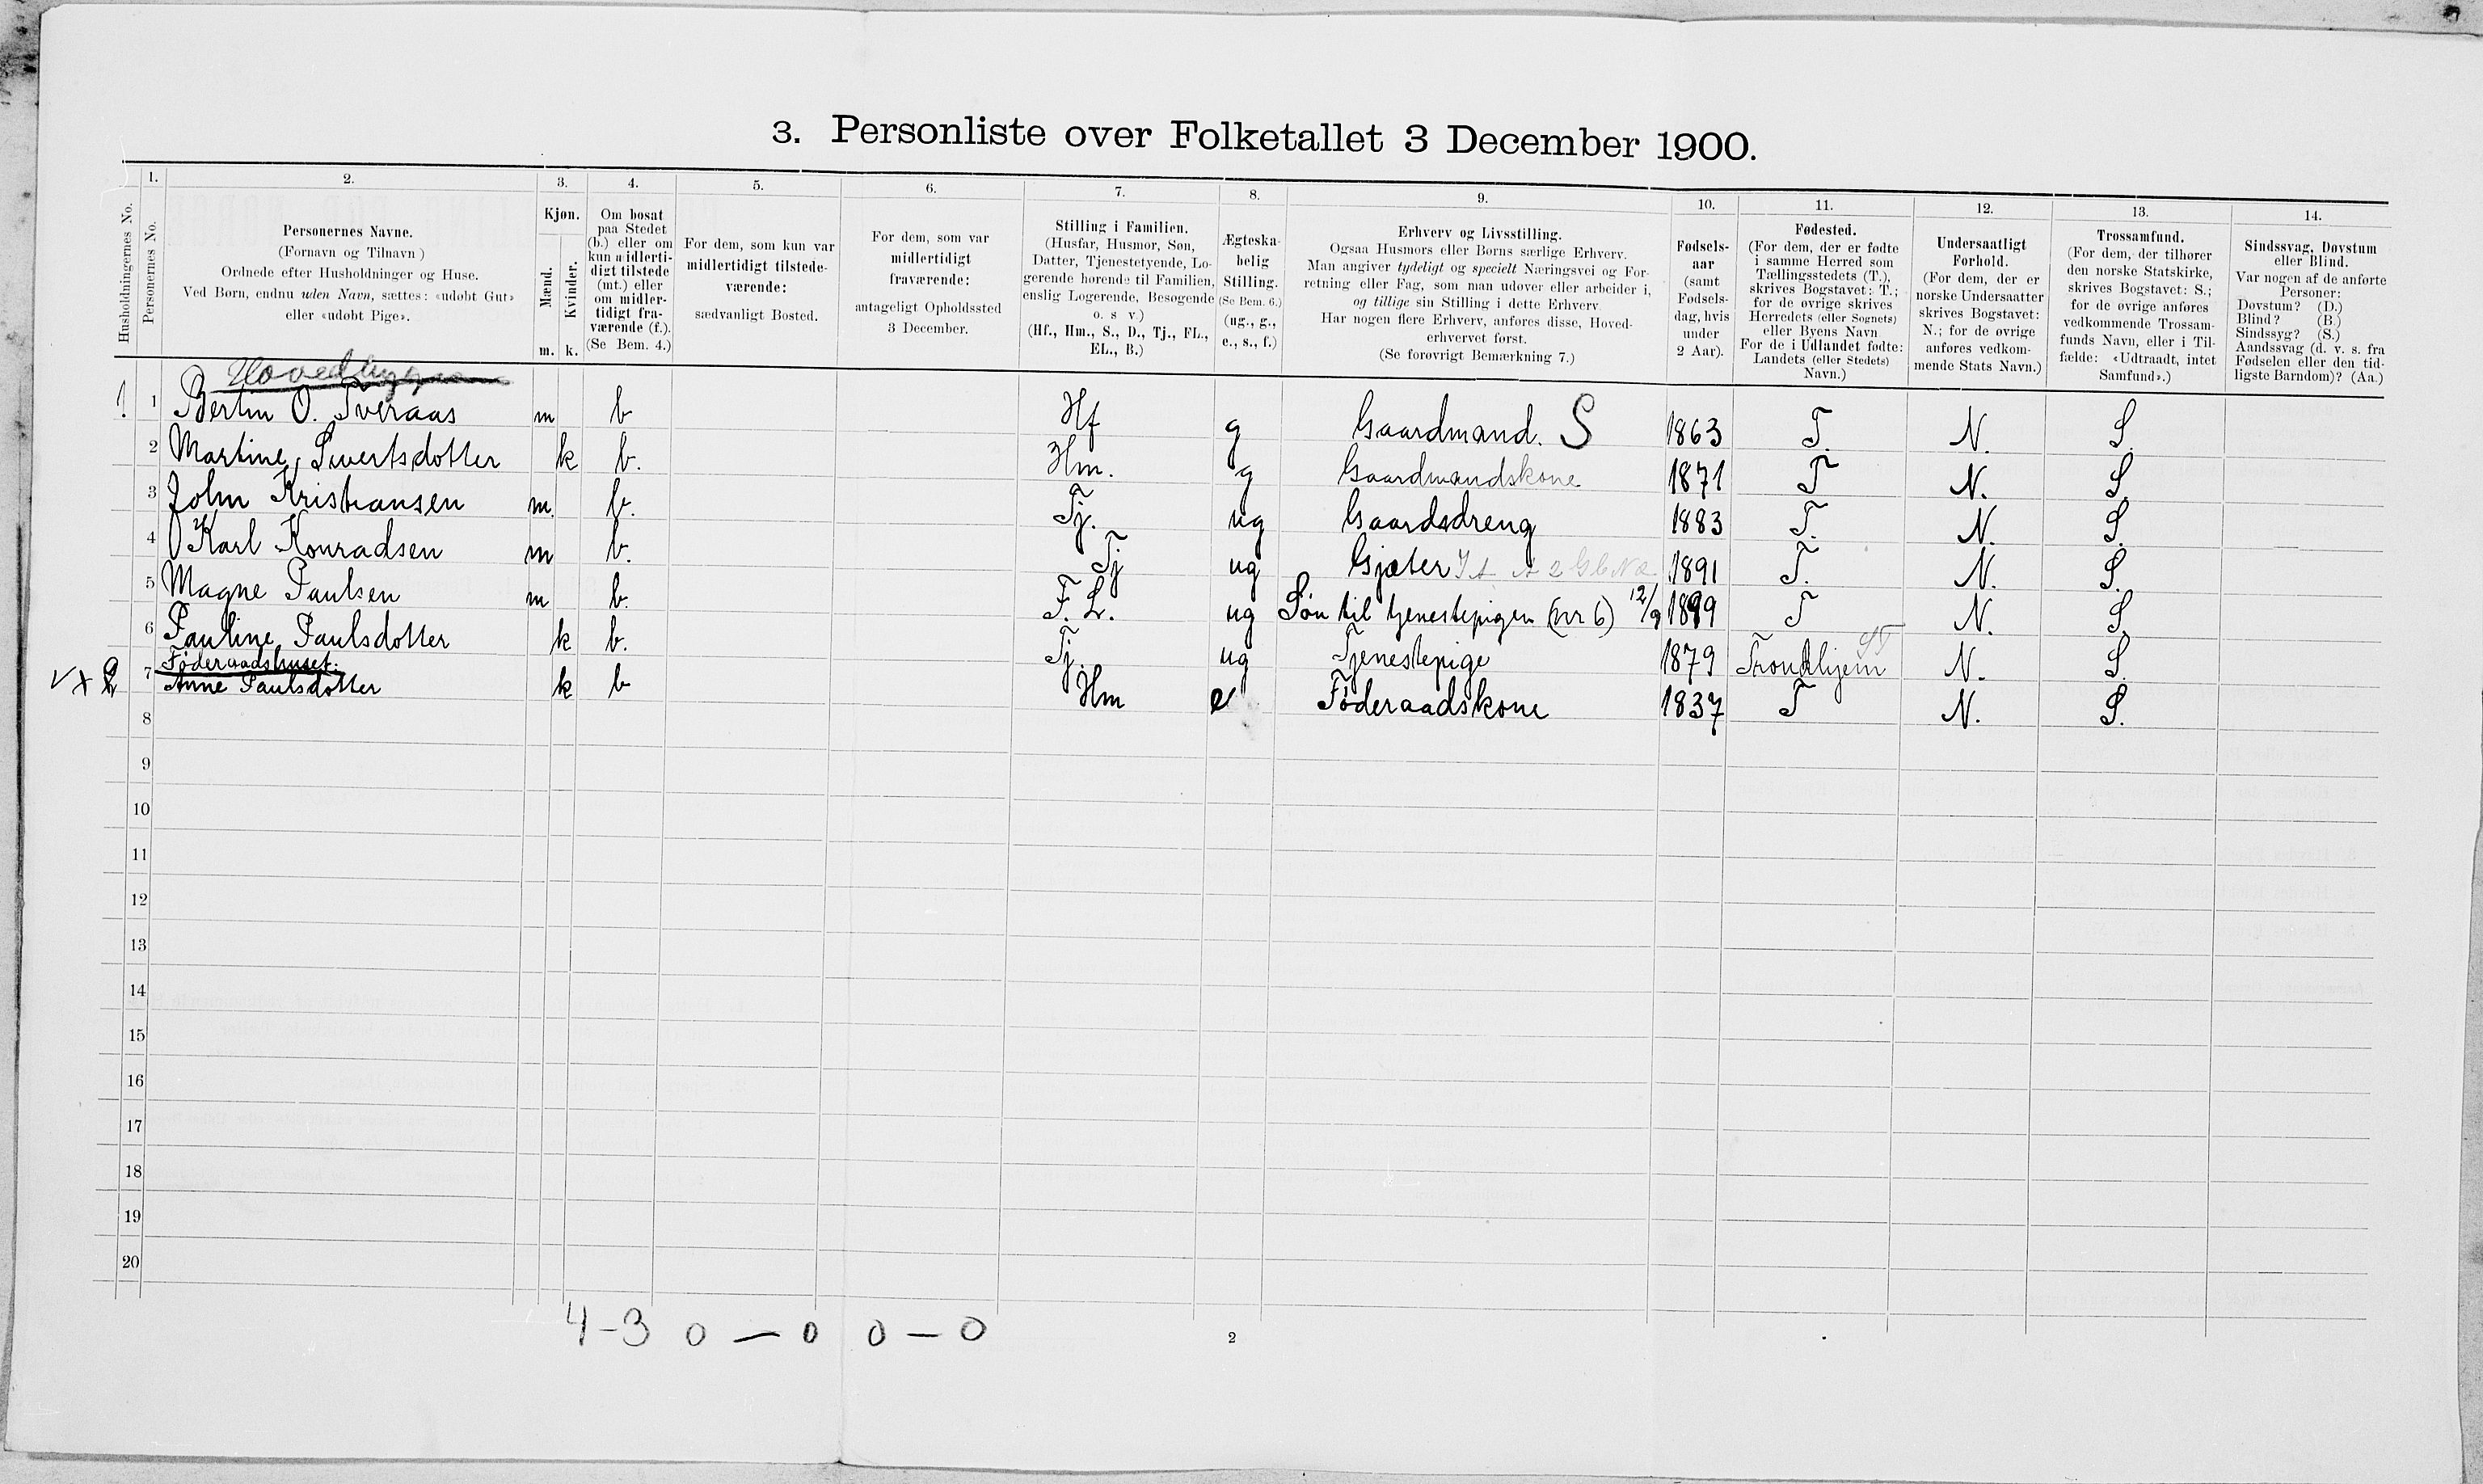 3. Personliste over Folketallet 3 December 1900.
1. 2. 3. 4. 5. 6. 7. 8. 9. 10. 11. 12. 13. 14.
Husholdningernes No.
Personernes No.
Personernes Navne.
(Fornavn og Tilnavn)
Ordnede efter Husholdninger og Huse.
Ved Børn, endnu uden Navn, sættes: «udøbt Gut»
eller «udøbt Pige».
Kjøn.
Mænd.
Kvinder.
m. k.
Om bosat
paa Stedet
(b.) eller om
kun midlerti-
digt tilstede
(mt.) eller
om midler-
tidigt fra-
værende (f.).
(Se Bem. 4.)
For dem, som kun var
midlertidigt tilstede-
værende:
sædvanligt Bosted.
For dem, som var
midlertidigt
fraværende:
antageligt Opholdssted
3 December.
Stilling i Familien.
(Husfar, Husmor, Søn,
Datter, Tjenestetyende, Lo-
gerende hørende til Familien,
enslig Logerende, Besøgende
o. s v.)
(Hf., Hm., S., D., Tj., FL.,
EL., B.)
Ægteska-
belig
Stilling.
(Se Bem. 6.)
(ug., g.,
e., s., f.)
Erhverv og Livsstilling.
Ogsaa Husmors eller Børns særlige Erhverv.
Man angiver tydeligt og specielt Næringsvei og For-
retning eller Fag, som man udøver eller arbeider i,
og tillige sin Stilling i dette Erhverv.
Har nogen flere Erhverv, anføres disse, Hoved-
erhvervet først.
(Se forøvrigt Bemærkning 7.)
Fødsels-
aar
(samt
Fødsels-
dag, hvis
under
2 Aar).
Fødested.
(For dem, der er fødte
i samme Herred som
Tællingsstedets (T.),
skrives Bogstavet: T.;
for de øvrige skrives
Herredets (eller Sognets)
eller Byens Navn
For de i Udlandet fødte:
Landets (eller Stedets)
Navn.)
Undersaatligt
Forhold.
(For dem, der er
norske Undersaatter
skrives Bogstavet:
N.; for de øvrige
anføres vedkom-
mende Stats Navn.)
Trossamfund.
(For dem, der tilhører
den norske Statskirke,
skrives Bogstavet: S.;
for de øvrige anføres
vedkommende Trossam-
funds Navn, eller i Til-
fælde: «Udtraadt, intet
Samfund».)
Sindssvag, Døvstum
eller Blind.
Var nogen af de anførte
Personer:
Døvstum? (D.)
Blind? (B.)
Sindssyg? (S.)
Aandssvag (d. v. s. fra
Fødselen eller den tid-
ligste Barndom)? (Aa.)
1 1 Bertin O. Tveraas m b Hf g Gaardmand. S 1863 T. N. S.
2 Martine Sivertsdotter k b. Hm. g Gaardmandskone 1871 T N. S.
3 John Kristiansen m. b. Tj. ug Gaardsdreng 1883 T. N. S.
4 Karl Konradsen m b. Tj ug Gjæter 1891 T. N. S.
5 Magne Paulsen m b. F. L. ug Søn til tjenestepigen (nr 6) 12/9 1899 T N. S.
6 Pauline Paulsdotter k b. Tj. ug Tjenestepige 1879 Trondhjem ST N. S.
Føderaadshuset:
2 7 Anne Paulsdotter k b Hm e Føderaadskone 1837 T N. S.
8
9
10
11
12
13
14
15
16
17
18
19
20
4-3 0 — 0 0 — 0
2